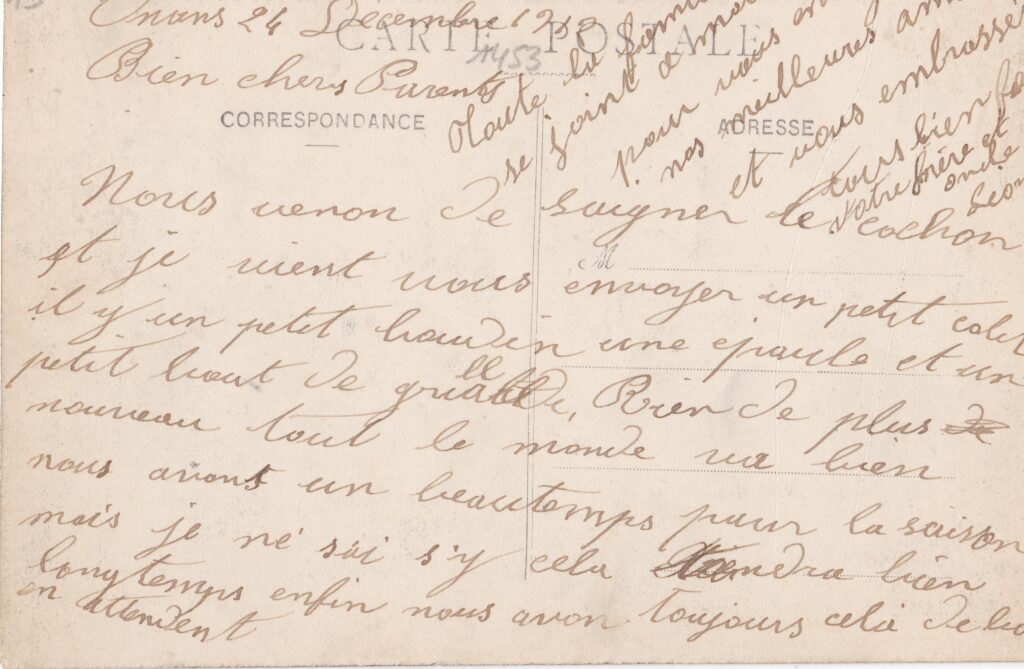 Onans 24 Decembre 1912
CARTE POSTALE
1453
Bien chers Parents
CORRESPONDANCE
ADRESSE
Nous venon de soigner le cochon
et je vient vous envoyer un petit colit
il y un petit boudin une epaule et un
petit bout de grillade, Rien de plus de
nouveau tout le monde va bien
nous avons un beautemps pour la saison
mais je né sai s'y cela tiendra bien
longtemps enfin nous avon toujours cela de bo
en attendent
M
Toute la
se joint a
pour vous
nos meilleures
et vous embrasse
tous bien
votre frère et
oncle